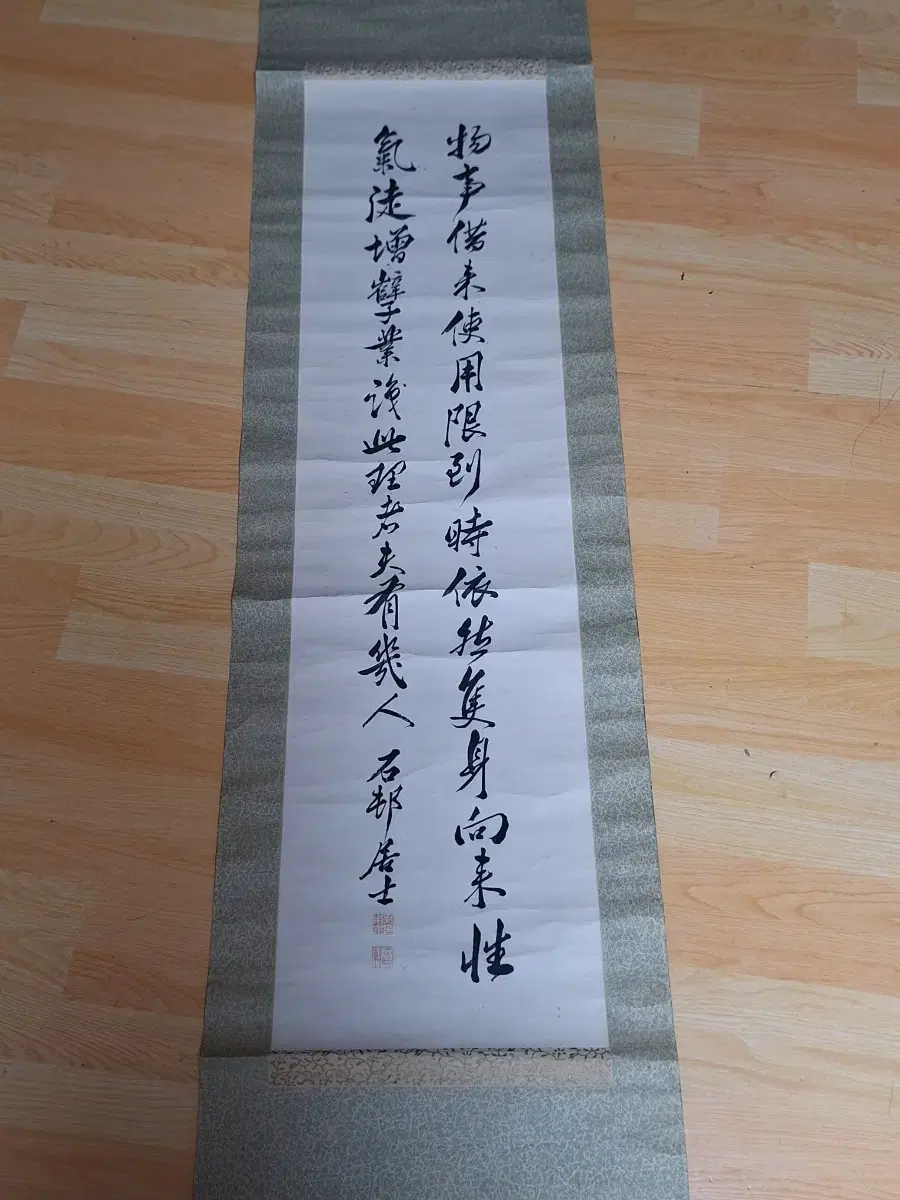 物事借来使用限到時依然隻身向来性
氣徒増孽業識此理者夫有幾人 石邨居士